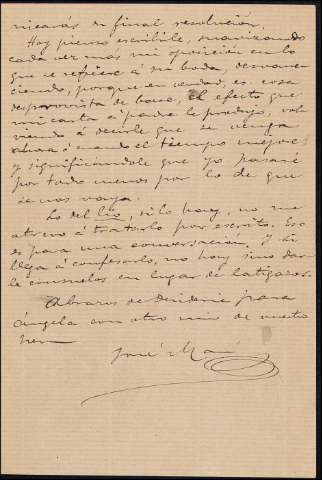 nicarás su final resolución.
Hoy pienso escribile, suavizando
cada vez más mi oposición en lo
que se refiere á su boda, desvane-
ciendo, porque en verdad, es cosa
desprovista de base, el efecto que
mi carta á padre le produjo, vol-
viendo á decirle que se venga
ahora ó cuando el tiempo mejore;
y significándole que yo pasaré
por todo menos por lo de que
se nos vaya.
Lo del lio, si lo hay, no me
atrevo á tratarlo por escrito. Eso
es para una conversación. Y si
llega á confesarlo, no hay sino dar-
le consuelos en lugar de latigazos.
Abrazos de Desideria para
Angela con otro mio de vuestro
her
José Ma